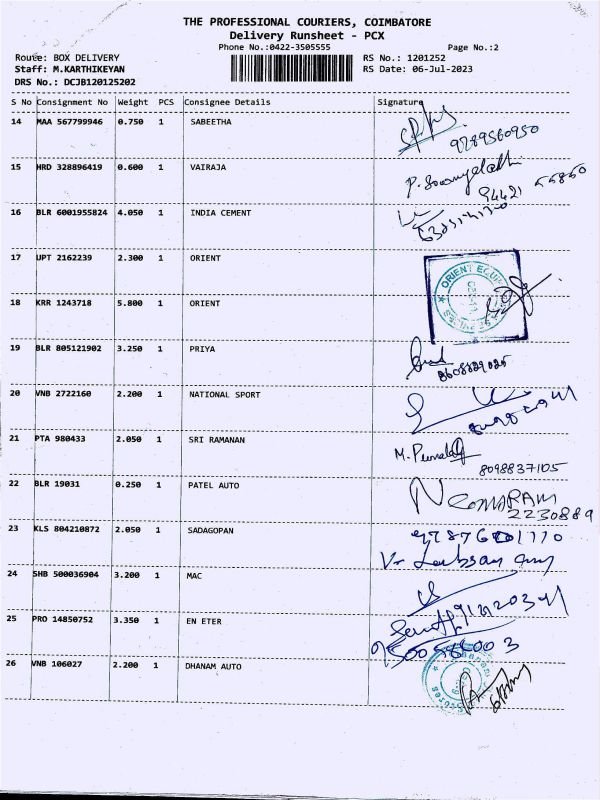 THE PROFESSIONAL COURIERS, COIMBATORE
Delivery Runsheet - PCX
Phone No.:0422-3505555 Page No.:2
Route: BOX DELIVERY RS No.: 1201252
Staff: M.KARTHIKEYAN RS Date: 06-Jul-2023
DRS No.: DCJB120125202
S No Consignment No Weight PCS Consignee Details Signature
14 MAA 567799946 0.750 1 SABEETHA
9789560950
15 HRD 328896419 0.600 1 VAIRAJA
94421 55850
16 BLR 6001955824 4.050 1 INDIA CEMENT
17 UPT 2162239 2.300 1 ORIENT
ORIENT
18 KRR 1243718 5.800 1 ORIENT
19 BLR 805121902 3.250 1 PRIYA
20 VNB 2722160 2.200 1 NATIONAL SPORT
21 PTA 980433 2.050 1 SRI RAMANAN
8098837105
22 BLR 19031 0.250 1 PATEL AUTO
2230889
23 KLS 804210872 2.050 1 SADAGOPAN
24 SHB 500036904 3.200 1 MAC
25 PRO 14850752 3.350 1 EN ETER
26 VNB 106027 2.200 1 DHANAM AUTO